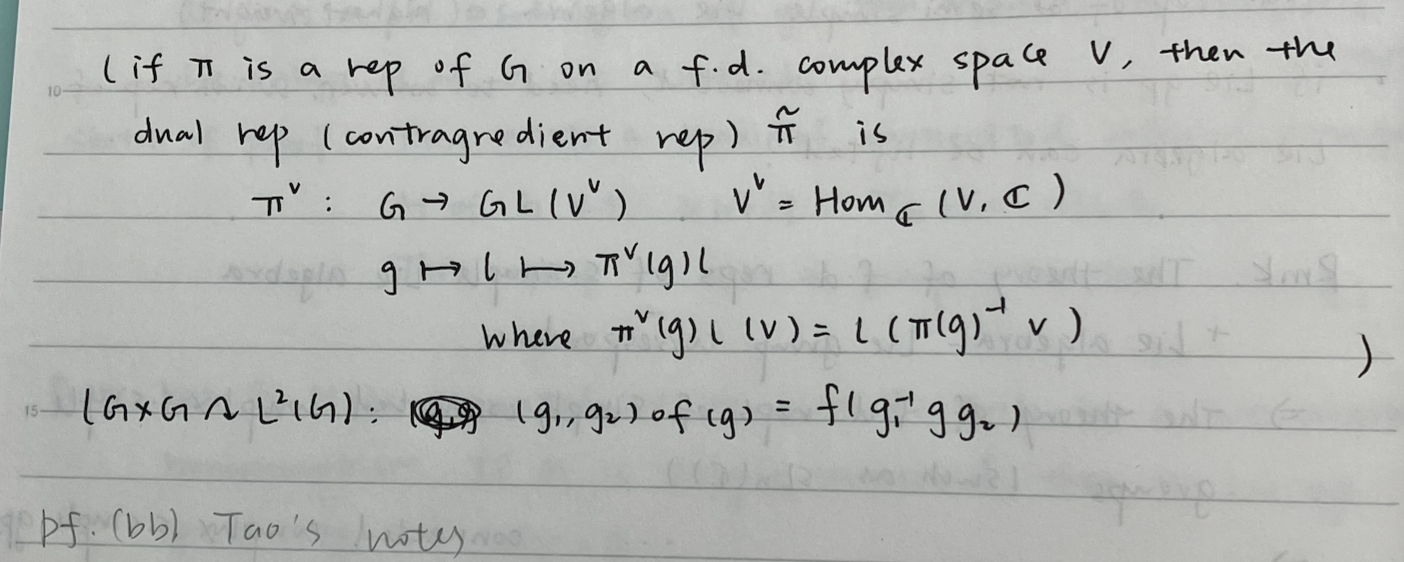 (if π is a rep of G on a f.d. complex space V, then the
dual rep (contragredient rep) π̃ is
π^∨ : G → GL(V^∨) V^∨ = Hom_ℂ (V, ℂ)
g ↦ l ↦ π^∨(g)l
where π^∨(g)l(v) = l(π(g)^{-1} v) )
(G×G ↷ L²(G): (g₁, g₂)∘f(g) = f(g₁^{-1} g g₂)
pf. (bb) Tao's notes